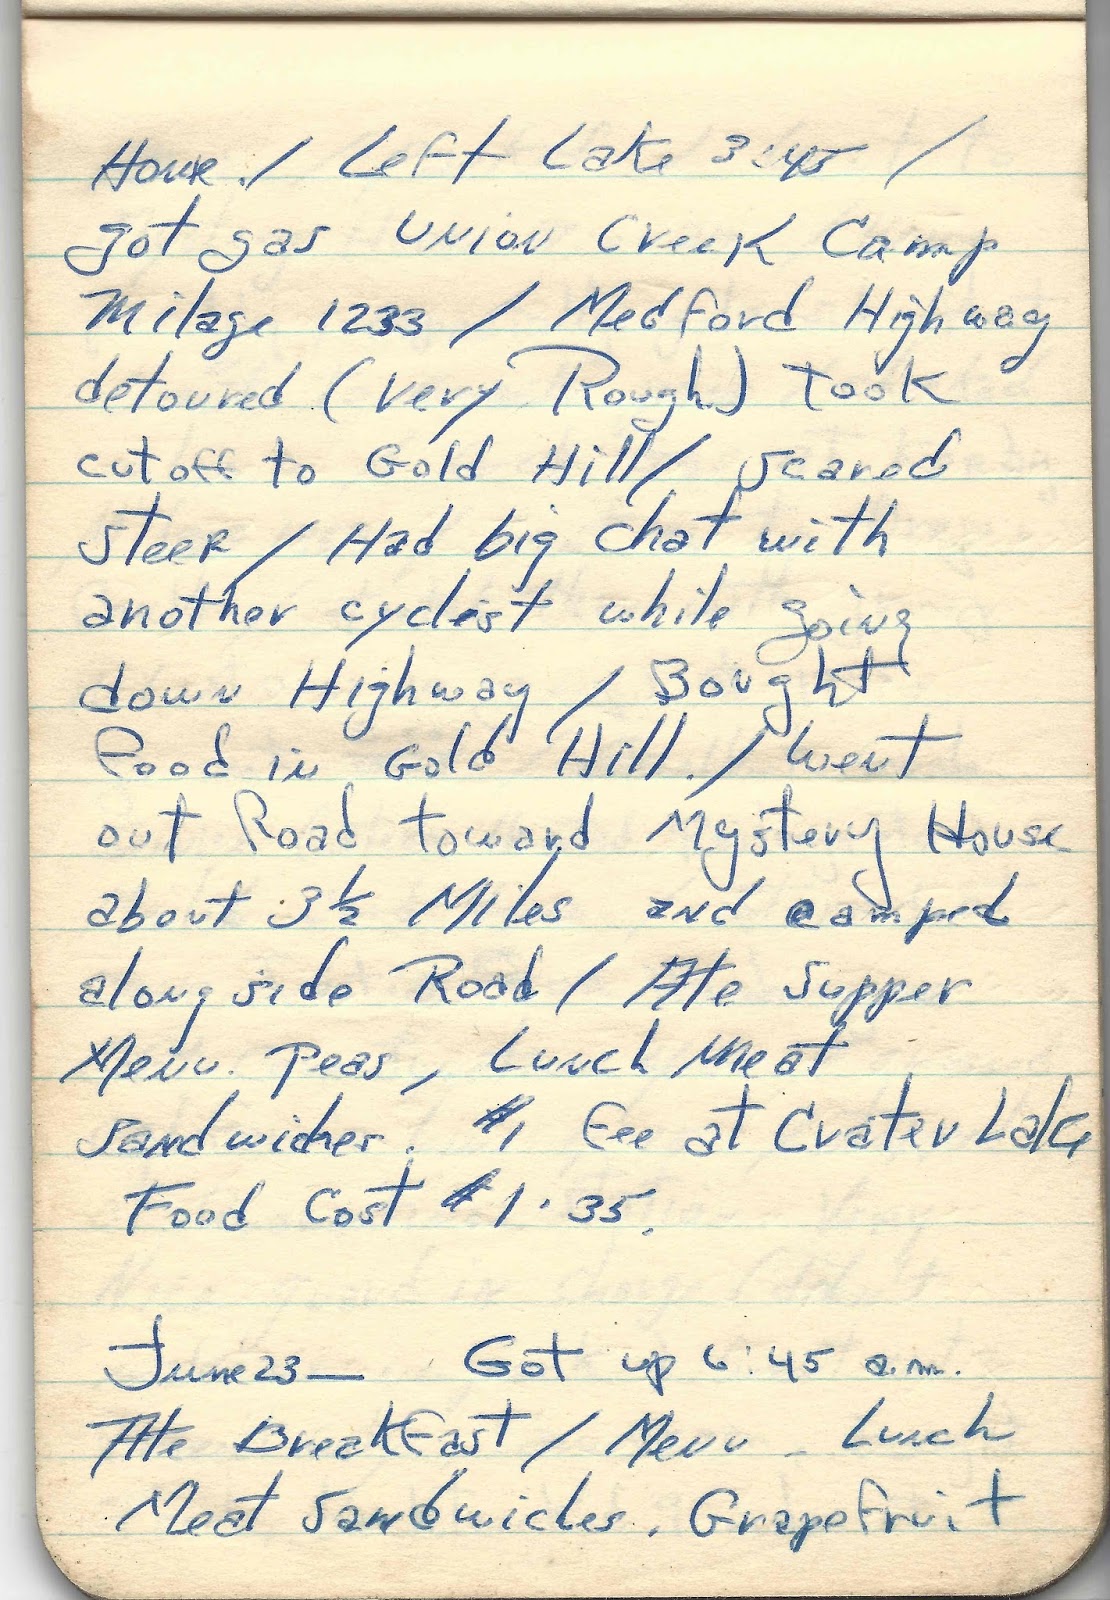 Home. / Left Lake 3:45 /
got gas Union Creek Camp
Milage 1233 / Medford Highway
detoured (very Rough) took
cutoff to Gold Hill / scared
steer / Had big chat with
another cyclist while going
down Highway / Bought
Food in Gold Hill. / went
out Road toward Mystery House
about 3½ Miles and camped
along side Road / Ate supper
Menu. Peas, Lunch Meat
sandwiches. $1 Fee at Crater Lake
Food Cost $1.35.
June 23— Got up 6:45 a.m.
Ate Breakfast / Menu - Lunch
Meat Sandwiches. Grapefruit